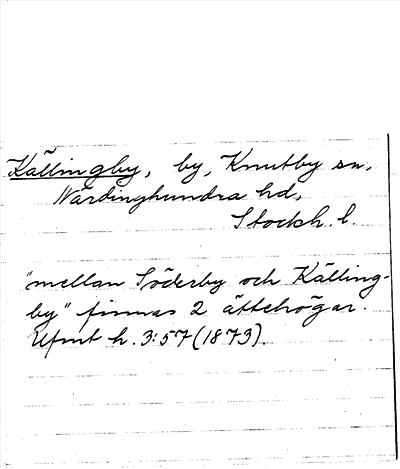 Källingby, by, Knutby sn,
Närdinghundra hd,
Stockh. l.
"mellan Söderby och Källing-
by" finnas 2 ättehögar.
Upmt h. 3:57 (1873).